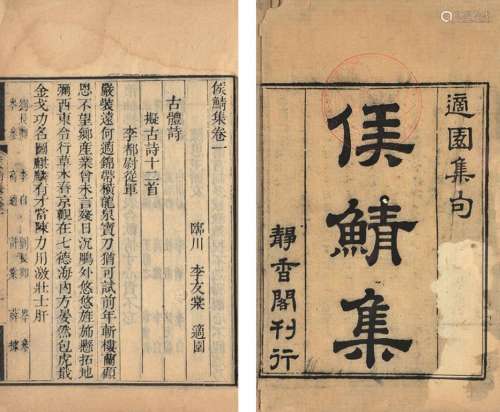 適園集句
侯鯖集
靜香閣刊行
侯鯖集卷一
臨川 李友棠 適園
古體詩
擬古詩十二首
李都尉從軍
嚴裝遠何適錦帶橫龍泉寶刀猶可試前年斬樓蘭顧
恩不望鄉產業曾未言幾日沉鵰外悠悠旌旆懸拓地
彌西東令行草木春京觀在七德海內方晏然包虎戢
金戈功名圖麒麟有才當陳力用激壯士肝
劉長卿 李白 劉長卿 岑參
高適